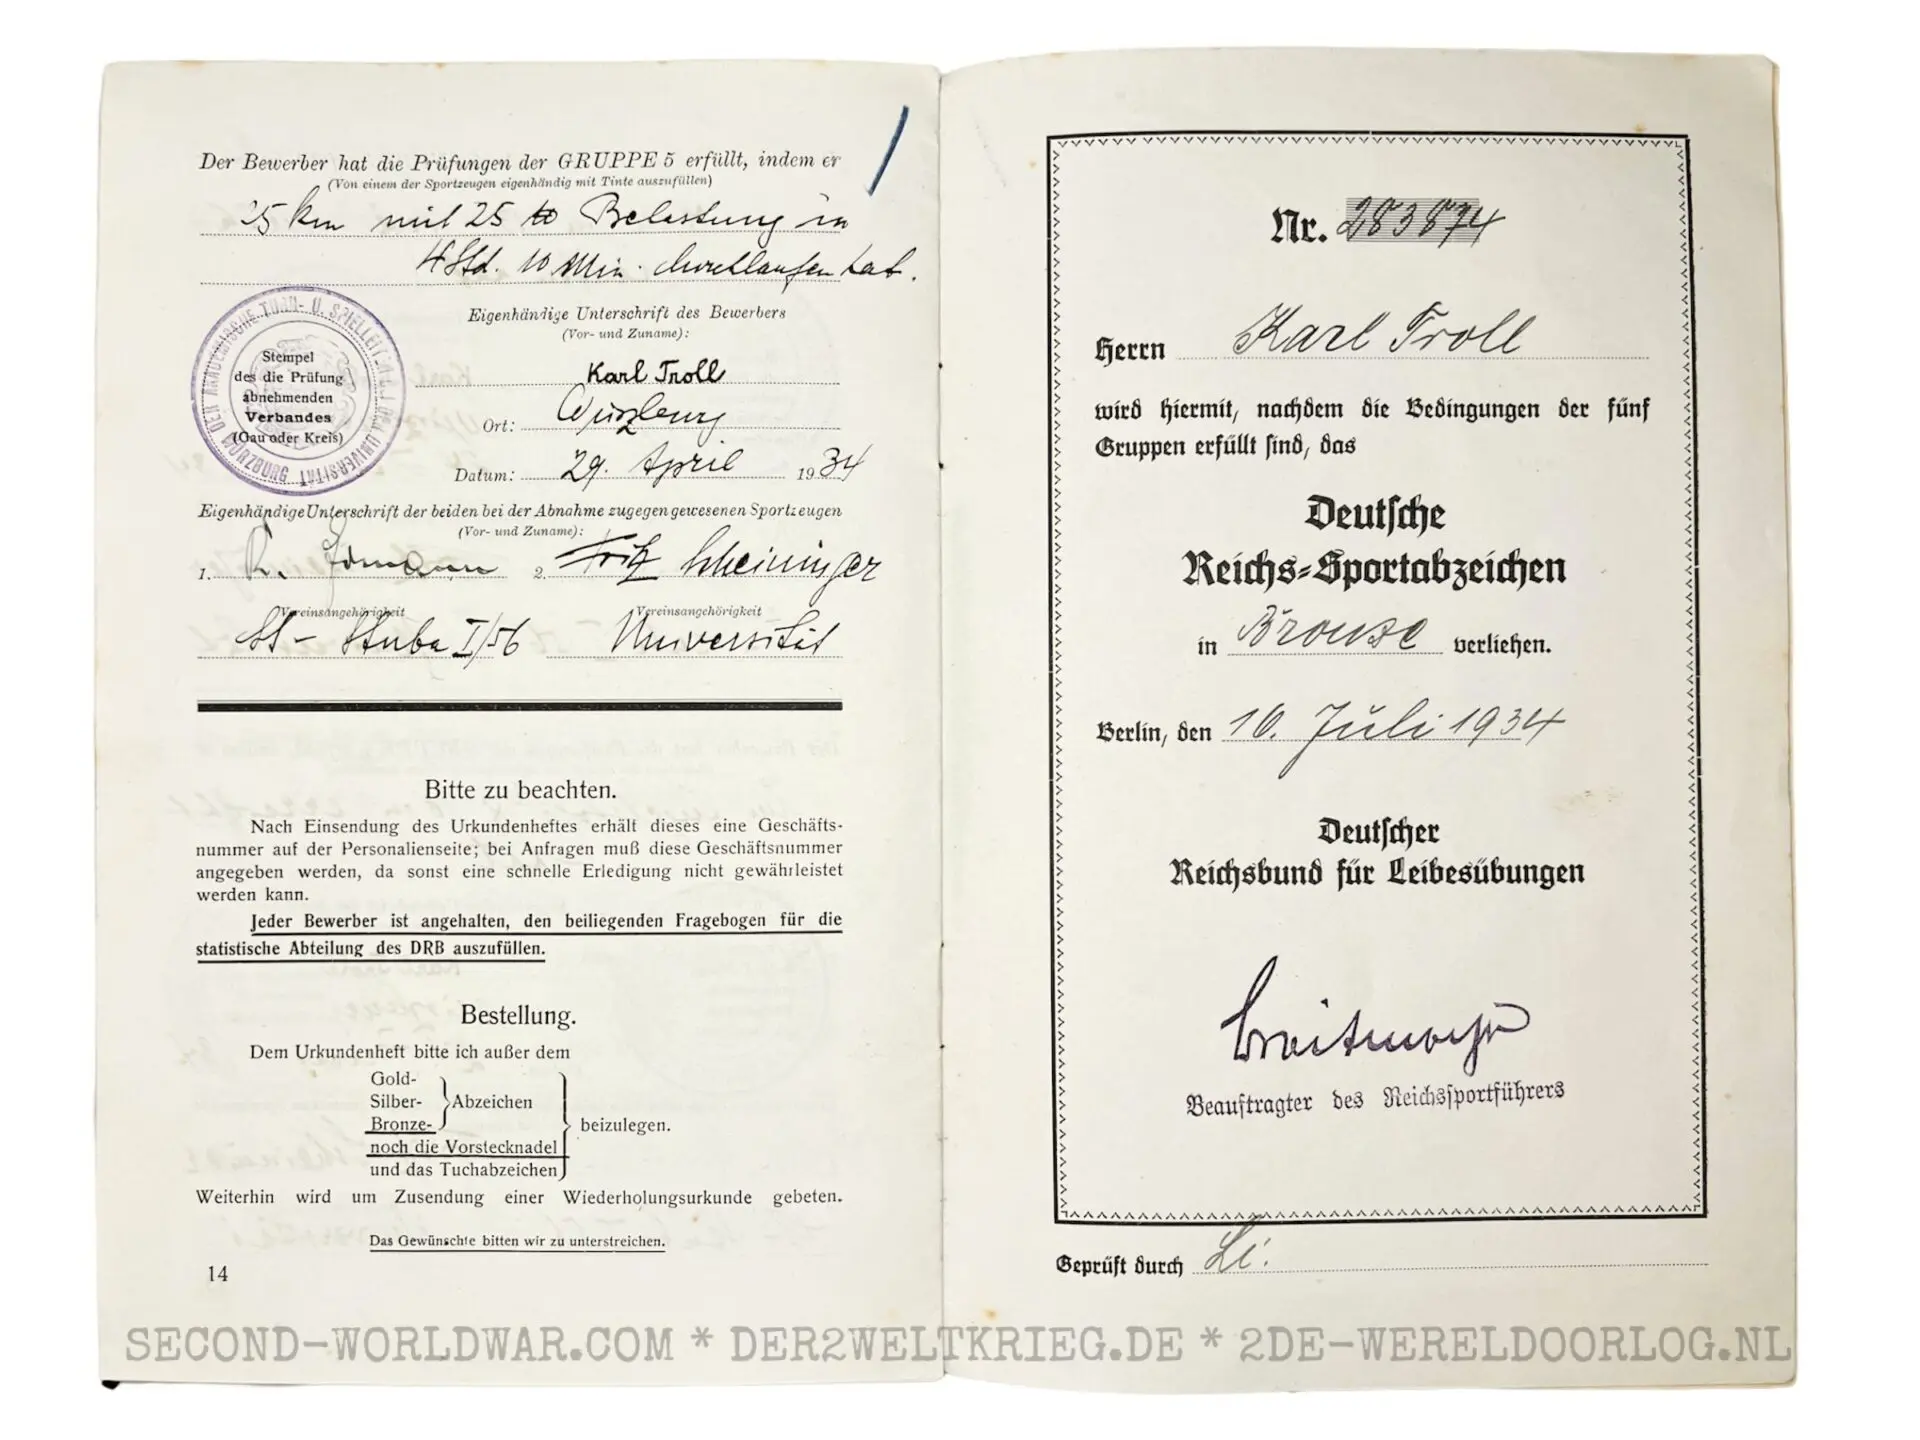 Der Bewerber hat die Prüfungen der GRUPPE 5 erfüllt, indem er
(Von einem der Sportzeugen eigenhändig mit Tinte auszufüllen)
25 km mit 25 Belastung in
4 Std. 10 Min. durchlaufen hat.
DER AKADEMISCHE TURN- U. SPIELLEITER A. D. UNIVERSITÄT WÜRZBURG
Stempel
des die Prüfung
abnehmenden
Verbandes
(Gau oder Kreis)
Eigenhändige Unterschrift des Bewerbers
(Vor- und Zuname):
Karl Troll
Ort: Würzburg
Datum: 29. April 1934
Eigenhändige Unterschrift der beiden bei der Abnahme zugegen gewesenen Sportzeugen
(Vor- und Zuname):
1. K. 2. Fritz Scheininger
Vereinsangehörigkeit Vereinsangehörigkeit
SS- Stuba I/56 Universität
Bitte zu beachten.
Nach Einsendung des Urkundenheftes erhält dieses eine Geschäfts-
nummer auf der Personalienseite; bei Anfragen muß diese Geschäftsnummer
angegeben werden, da sonst eine schnelle Erledigung nicht gewährleistet
werden kann.
Jeder Bewerber ist angehalten, den beiliegenden Fragebogen für die
statistische Abteilung des DRB auszufüllen.
Bestellung.
Dem Urkundenheft bitte ich außer dem
Gold-
Silber- Abzeichen
Bronze- beizulegen.
noch die Vorstecknadel
und das Tuchabzeichen
Weiterhin wird um Zusendung einer Wiederholungsurkunde gebeten.
Das Gewünschte bitten wir zu unterstreichen.
14
Nr. 283874
Herrn Karl Troll
wird hiermit, nachdem die Bedingungen der fünf
Gruppen erfüllt sind, das
Deutsche
Reichs-Sportabzeichen
in Bronze verliehen.
Berlin, den 16. Juli 1934
Deutscher
Reichsbund für Leibesübungen
Breitmeyer
Beauftragter des Reichssportführers
Geprüft durch Li.
SECOND-WORLDWAR.COM * DER2WELTKRIEG.DE * 2DE-WERELDOORLOG.NL